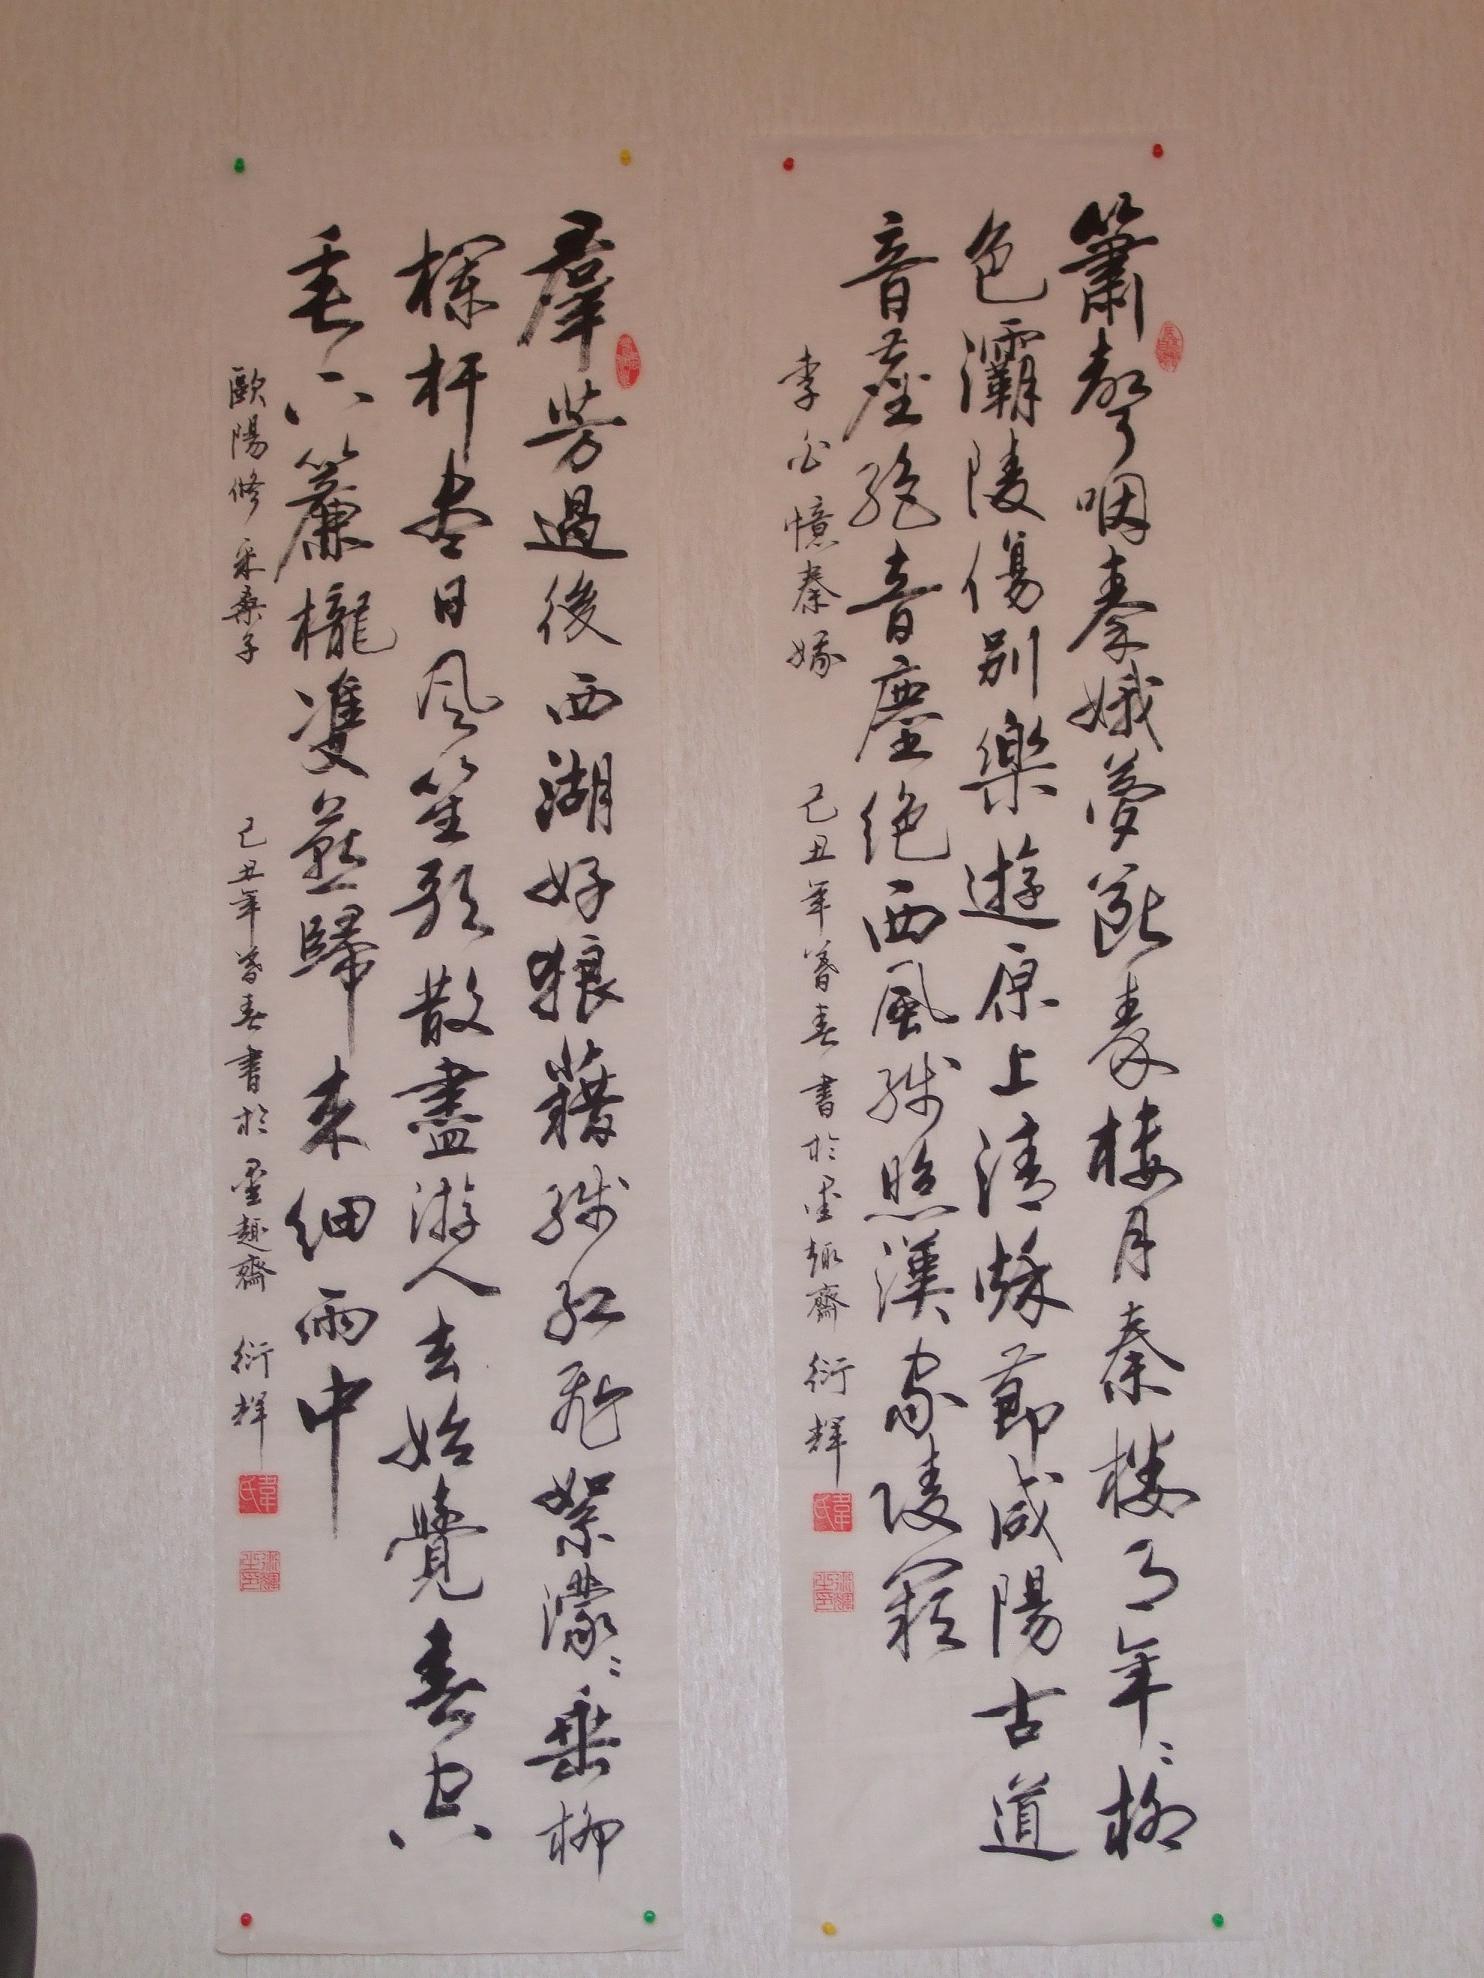 簫聲咽秦娥夢斷秦樓月秦樓月年〻柳
色灞陵傷別樂遊原上清秋節咸陽古道
音塵絕音塵絕西風殘照漢家陵闕
李白憶秦娥 己丑年暮春書於墨趣齋 衍輝
韋氏
群芳過後西湖好狼藉殘紅飛絮濛〻垂柳
欄杆盡日風笙歌散盡游人去始覺春空
垂下簾櫳雙燕歸來細雨中
歐陽修采桑子 己丑年暮春書於墨趣齋 衍輝
韋氏